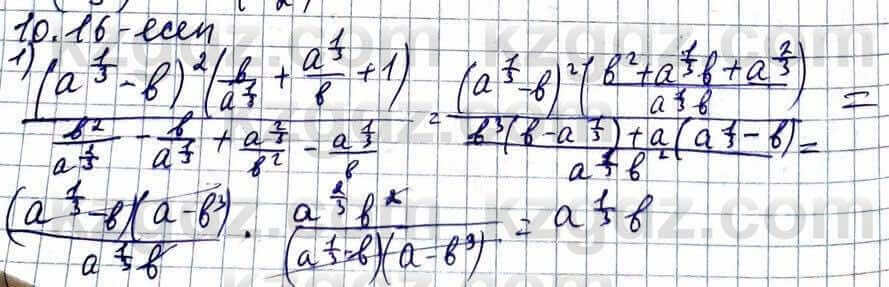 10.16-есеп
1) \frac{(a^{\frac{1}{3}} - b)^2 (\frac{b}{a^{\frac{1}{3}}} + \frac{a^{\frac{1}{3}}}{b} + 1)}{\frac{b^2}{a^{\frac{2}{3}}} - \frac{b}{a^{\frac{1}{3}}} + \frac{a^{\frac{2}{3}}}{b^2} - \frac{a^{\frac{1}{3}}}{b}} = \frac{(a^{\frac{1}{3}} - b)^2 (\frac{b^2 + a^{\frac{1}{3}} b + a^{\frac{2}{3}}}{a^{\frac{1}{3}} b})}{\frac{b^3 (b - a^{\frac{1}{3}}) + a (a^{\frac{1}{3}} - b)}{a^{\frac{2}{3}} b^2}} =
\frac{(a^{\frac{1}{3}} - b)(a - b^3)}{a^{\frac{1}{3}} b} \cdot \frac{a^{\frac{2}{3}} b^2}{(a^{\frac{1}{3}} - b)(a - b^3)} = a^{\frac{1}{3}} b